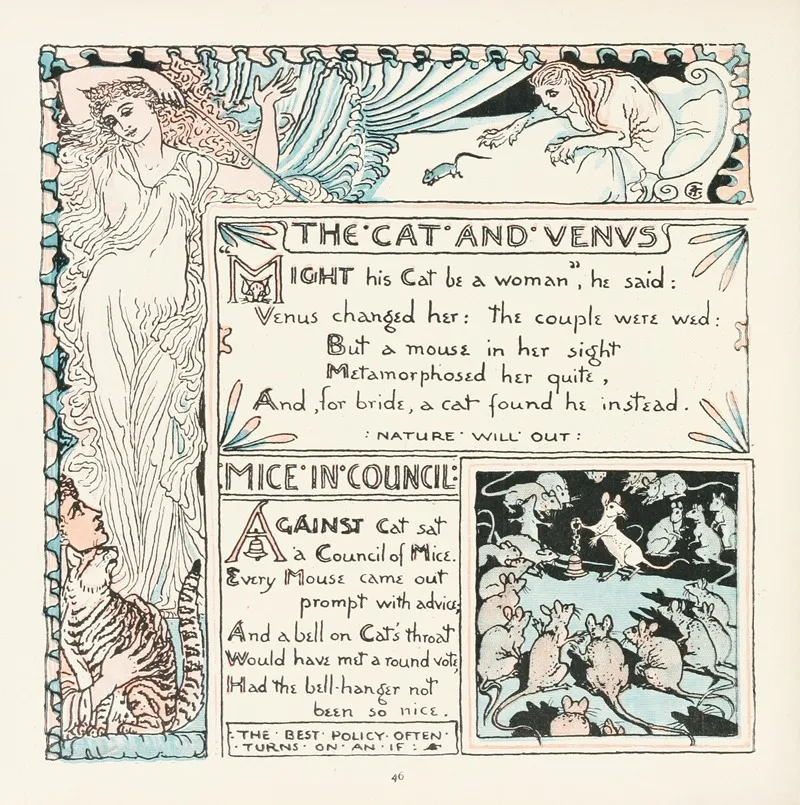 THE·CAT·AND·VENVS
MIGHT his Cat be a woman", he said:
Venus changed her: the couple were wed:
But a mouse in her sight
Metamorphosed her quite,
And, for bride, a cat found he instead.
: NATURE· WILL· OUT :
MICE·IN·COUNCIL:
AGAINST Cat sat
a Council of Mice.
Every Mouse came out
prompt with advice;
And a bell on Cat's throat
Would have met a round vote,
Had the bell-hanger not
been so nice.
·THE· BEST· POLICY· OFTEN·
·TURNS· ON· AN· IF :
46